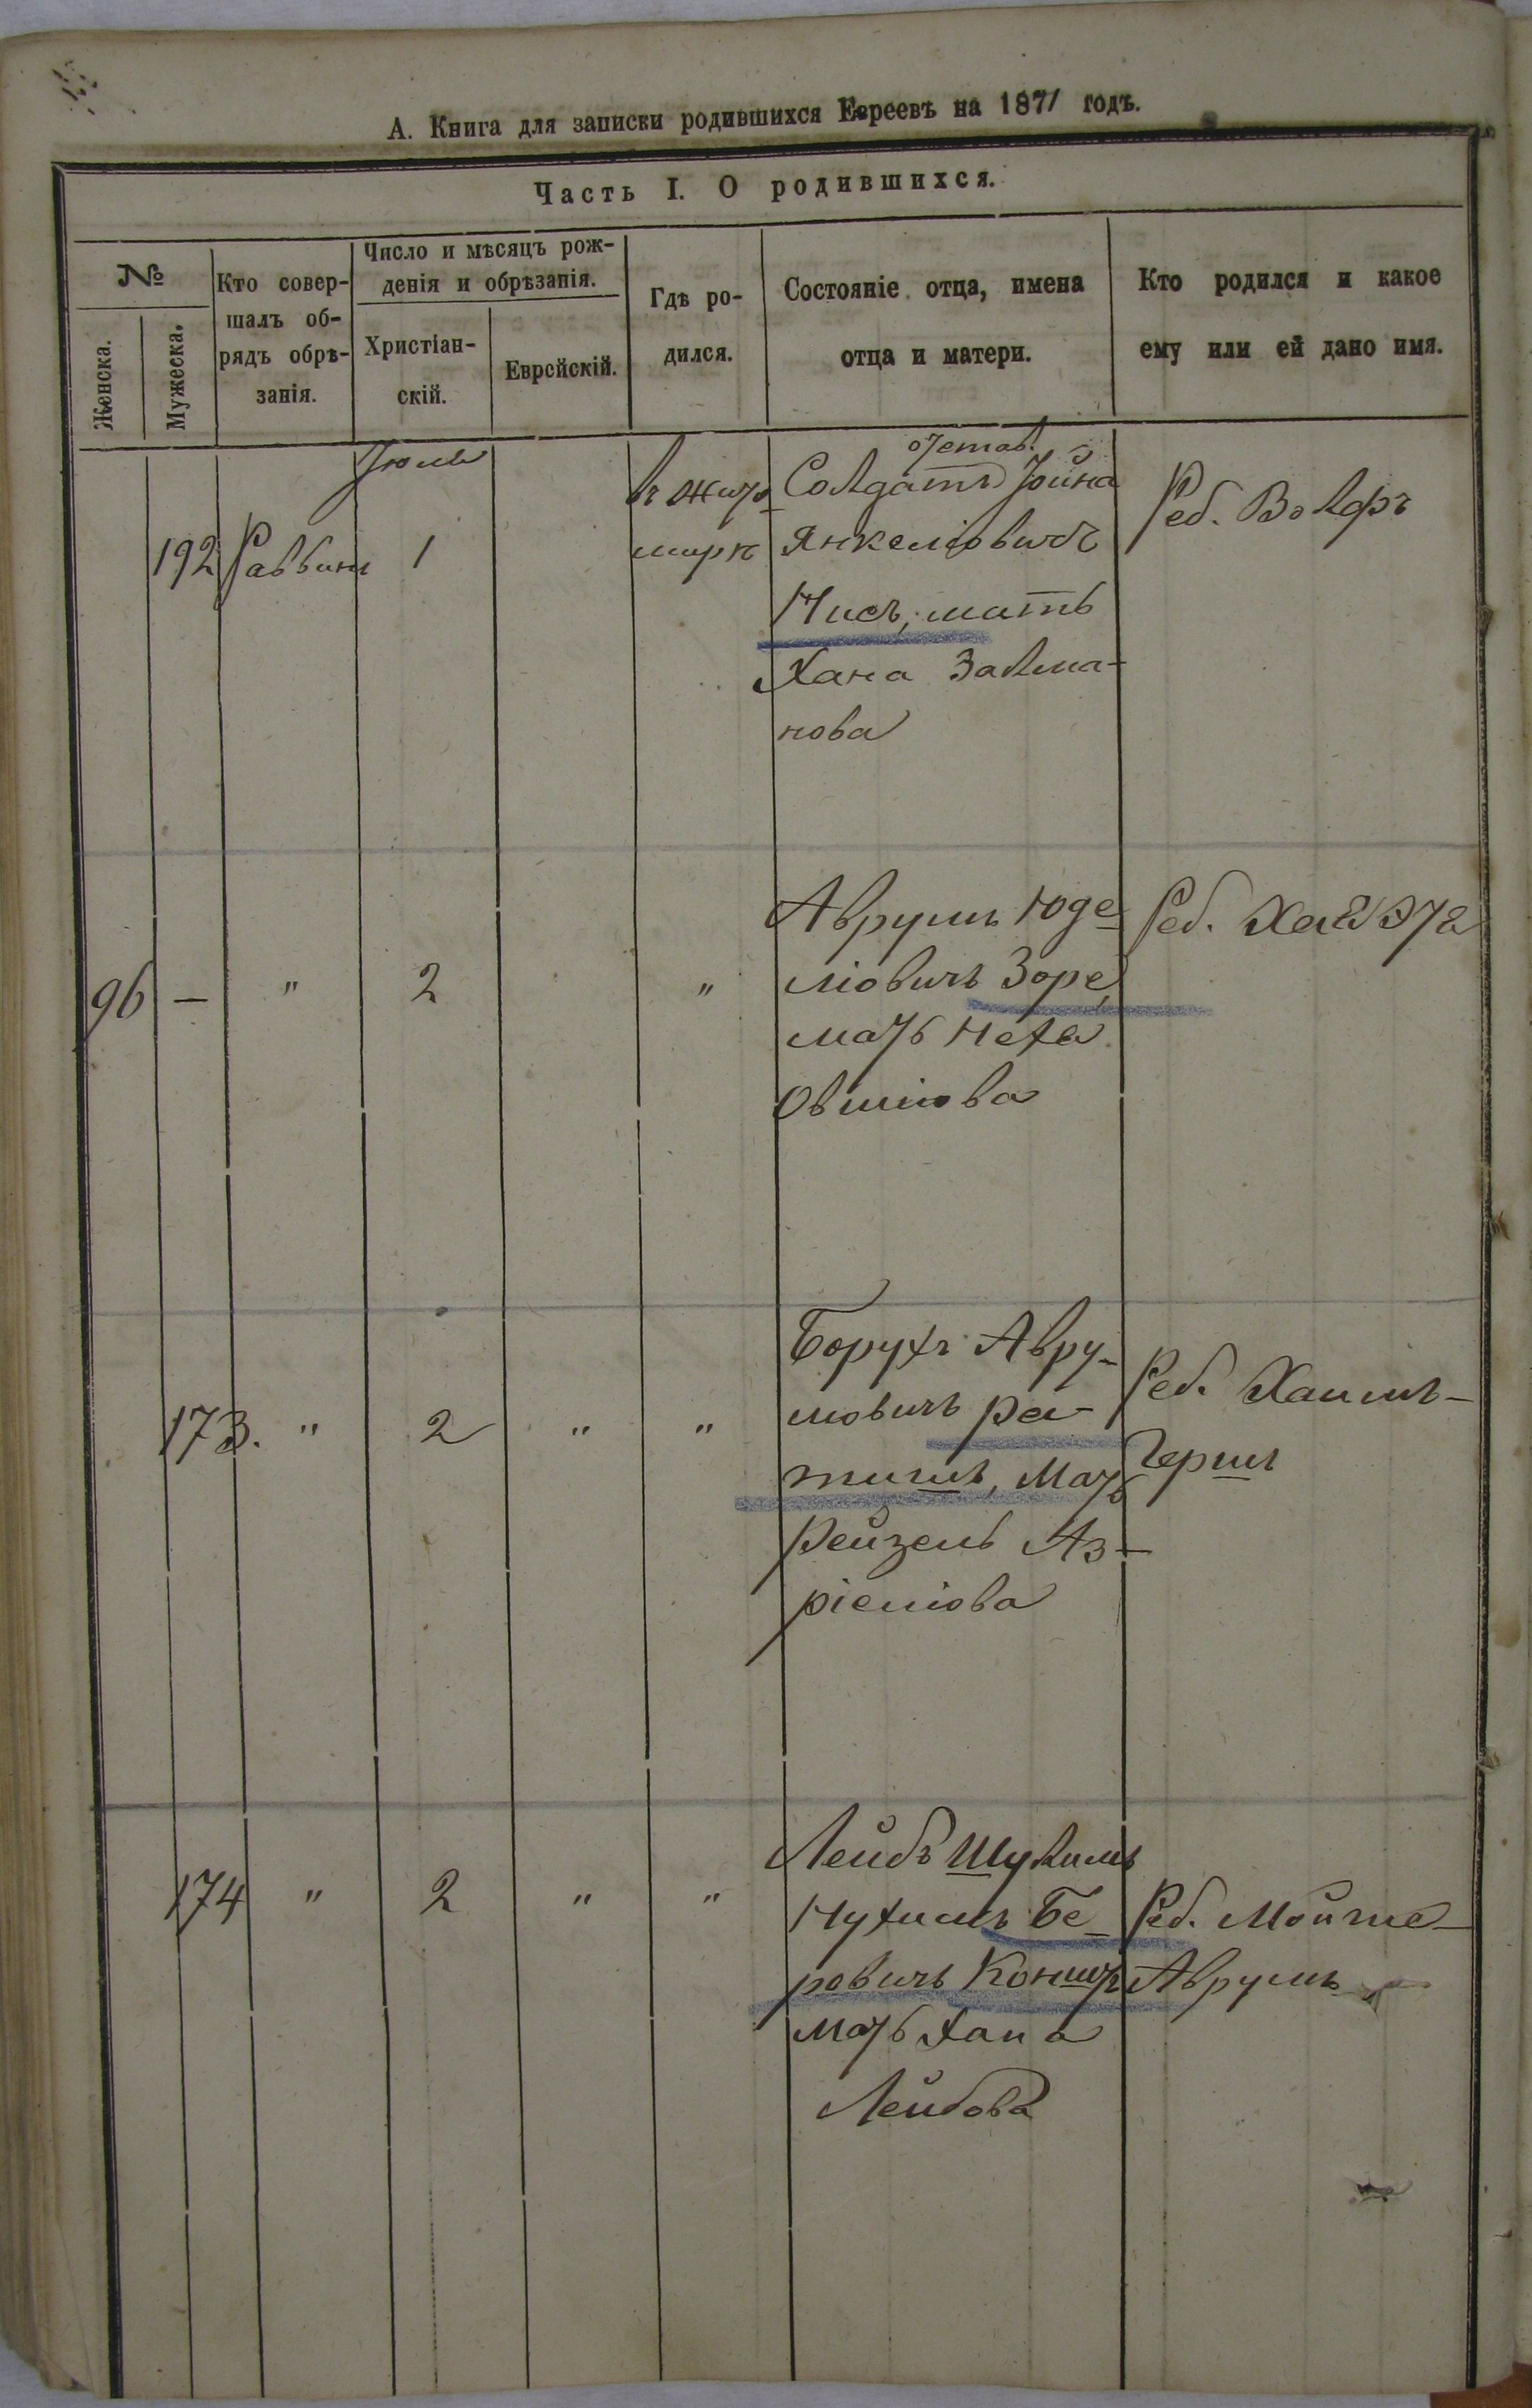 А. Книга для записки родившихся Евреевъ на 1871 годъ.
Часть I. О родившихся.
№
Женска.
Мужеска.
Кто совер-
шалъ об-
рядъ обрѣ-
занія.
Число и мѣсяцъ рож-
денія и обрѣзанія.
Христіан-
скій.
Еврейскій.
Гдѣ ро-
дился.
Состояніе отца, имена
отца и матери.
Кто родился и какое
ему или ей дано имя.
Іюль
192 Раввинъ 1
въ Жито
мирѣ
отстав.
Солдатъ Іойна
Янкеліовичъ
Нисъ, мать
Хана Залма-
нова
Реб. Волфъ
96 — " 2 "
Аврумъ Юде
ліовичъ Зоре,
мать Неха
Овшіова
Реб. Хая
173. " 2 " "
Борухъ Авру-
мовичъ Ра-
мать
Рейзель Аз-
ріеліова
Реб. Хаимъ-
Гершъ
174 " 2 " "
Лейбъ Шулимъ
Нухимъ Бе-
ровичъ
мать Хана
Лейбова
Реб. Мойше-
Аврумъ